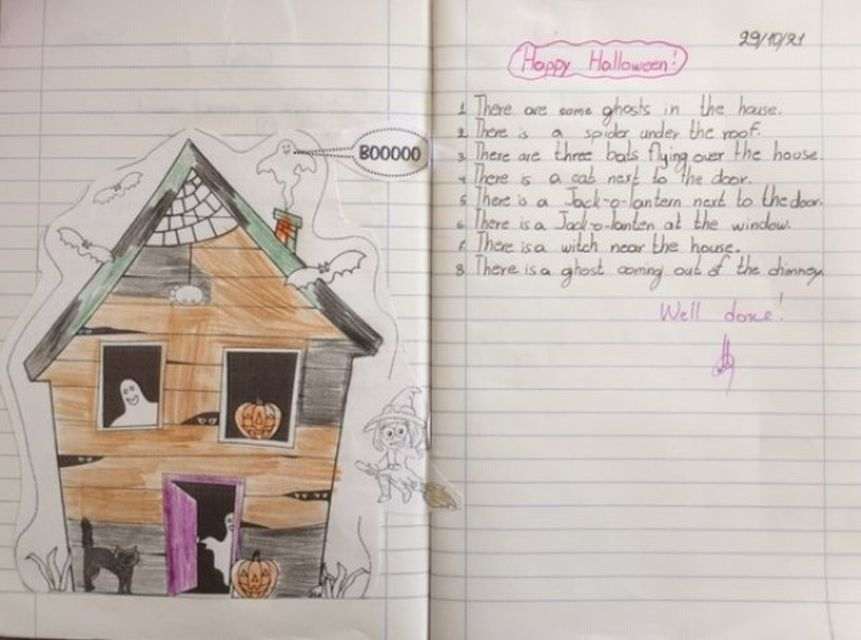 29/10/21
Happy Halloween!
BOOOOO
1. There are some ghosts in the house.
2. There is a spider under the roof.
3. There are three bats flying over the house.
4. There is a cat next to the door.
5. There is a Jack-o-lantern next to the door.
6. There is a Jack-o-lanten at the window.
7. There is a witch near the house.
8. There is a ghost coming out of the chimney.
Well done!